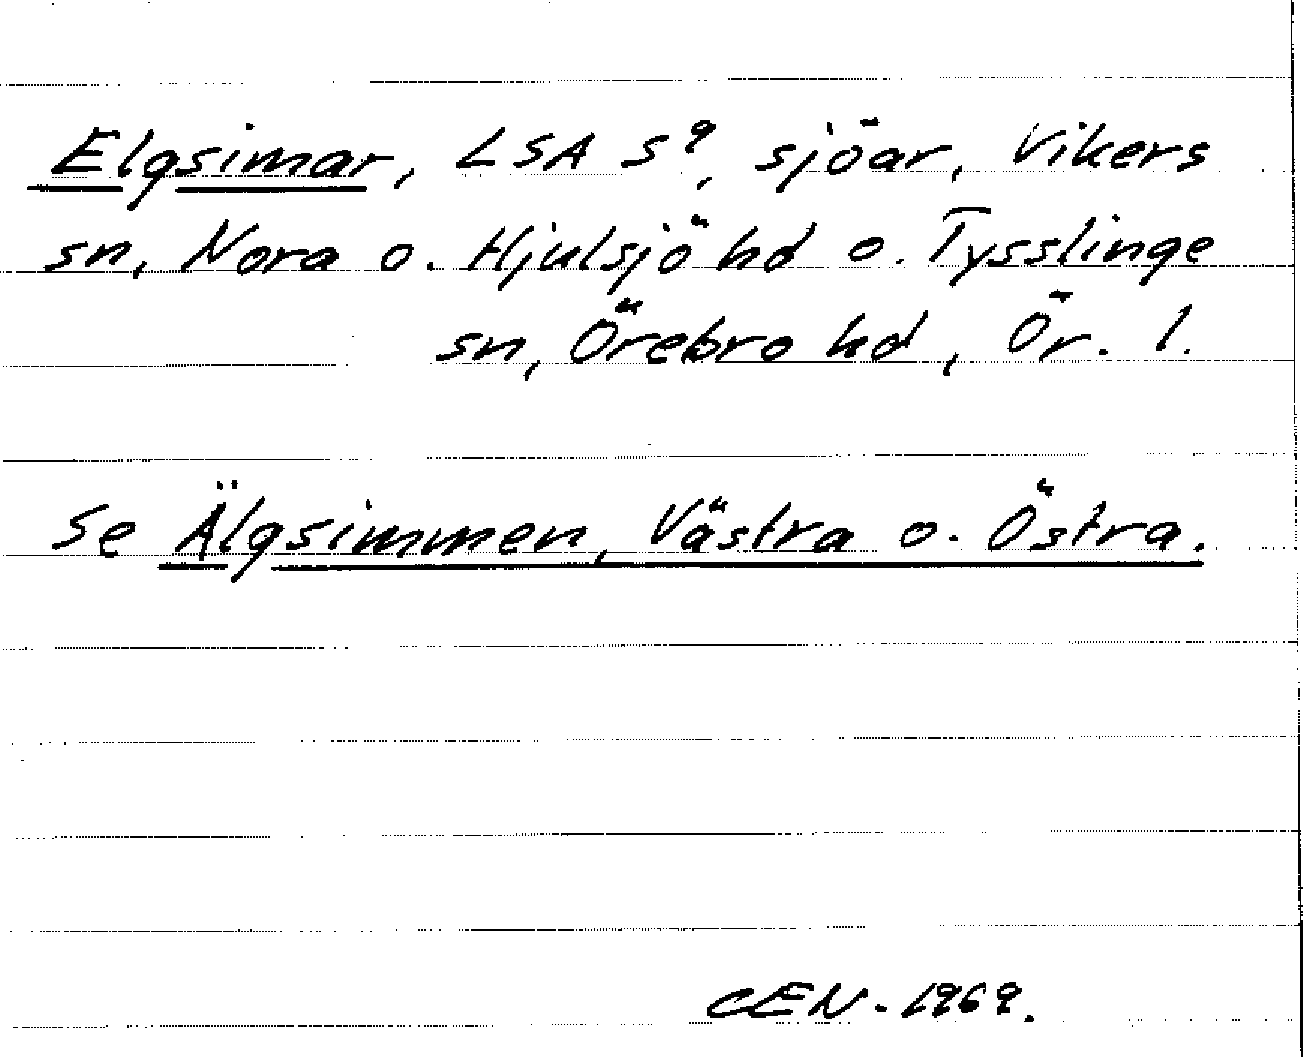 Elgsimar, LSA S⁹, sjöar, Vikers
sn, Nora o. Hjulsjö hd o. Tysslinge
sn, Örebro hd, Ör. l.
Se Älgsimmen, Västra o. Östra.
CEN. 1969.